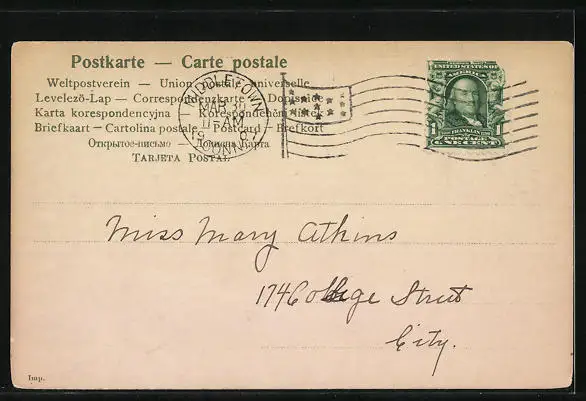 Postkarte — Carte postale
Weltpostverein — Union postale universelle
Levelező-Lap — Correspondenzkarte — Dopisnice
Karta korespondencyjna — Korespondenční lístek
Briefkaart — Cartolina postale — Postcard — Brefkort
Открытое-письмо — Дописна Карта
TARJETA POSTAL
MIDDLETOWN
MAR 30
11-AM
19 07
CONN.
UNITED STATES OF
AMERICA
FRANKLIN
1 POSTAGE 1
ONE CENT
Miss Mary Atkins
174 College Street
City.
Imp.